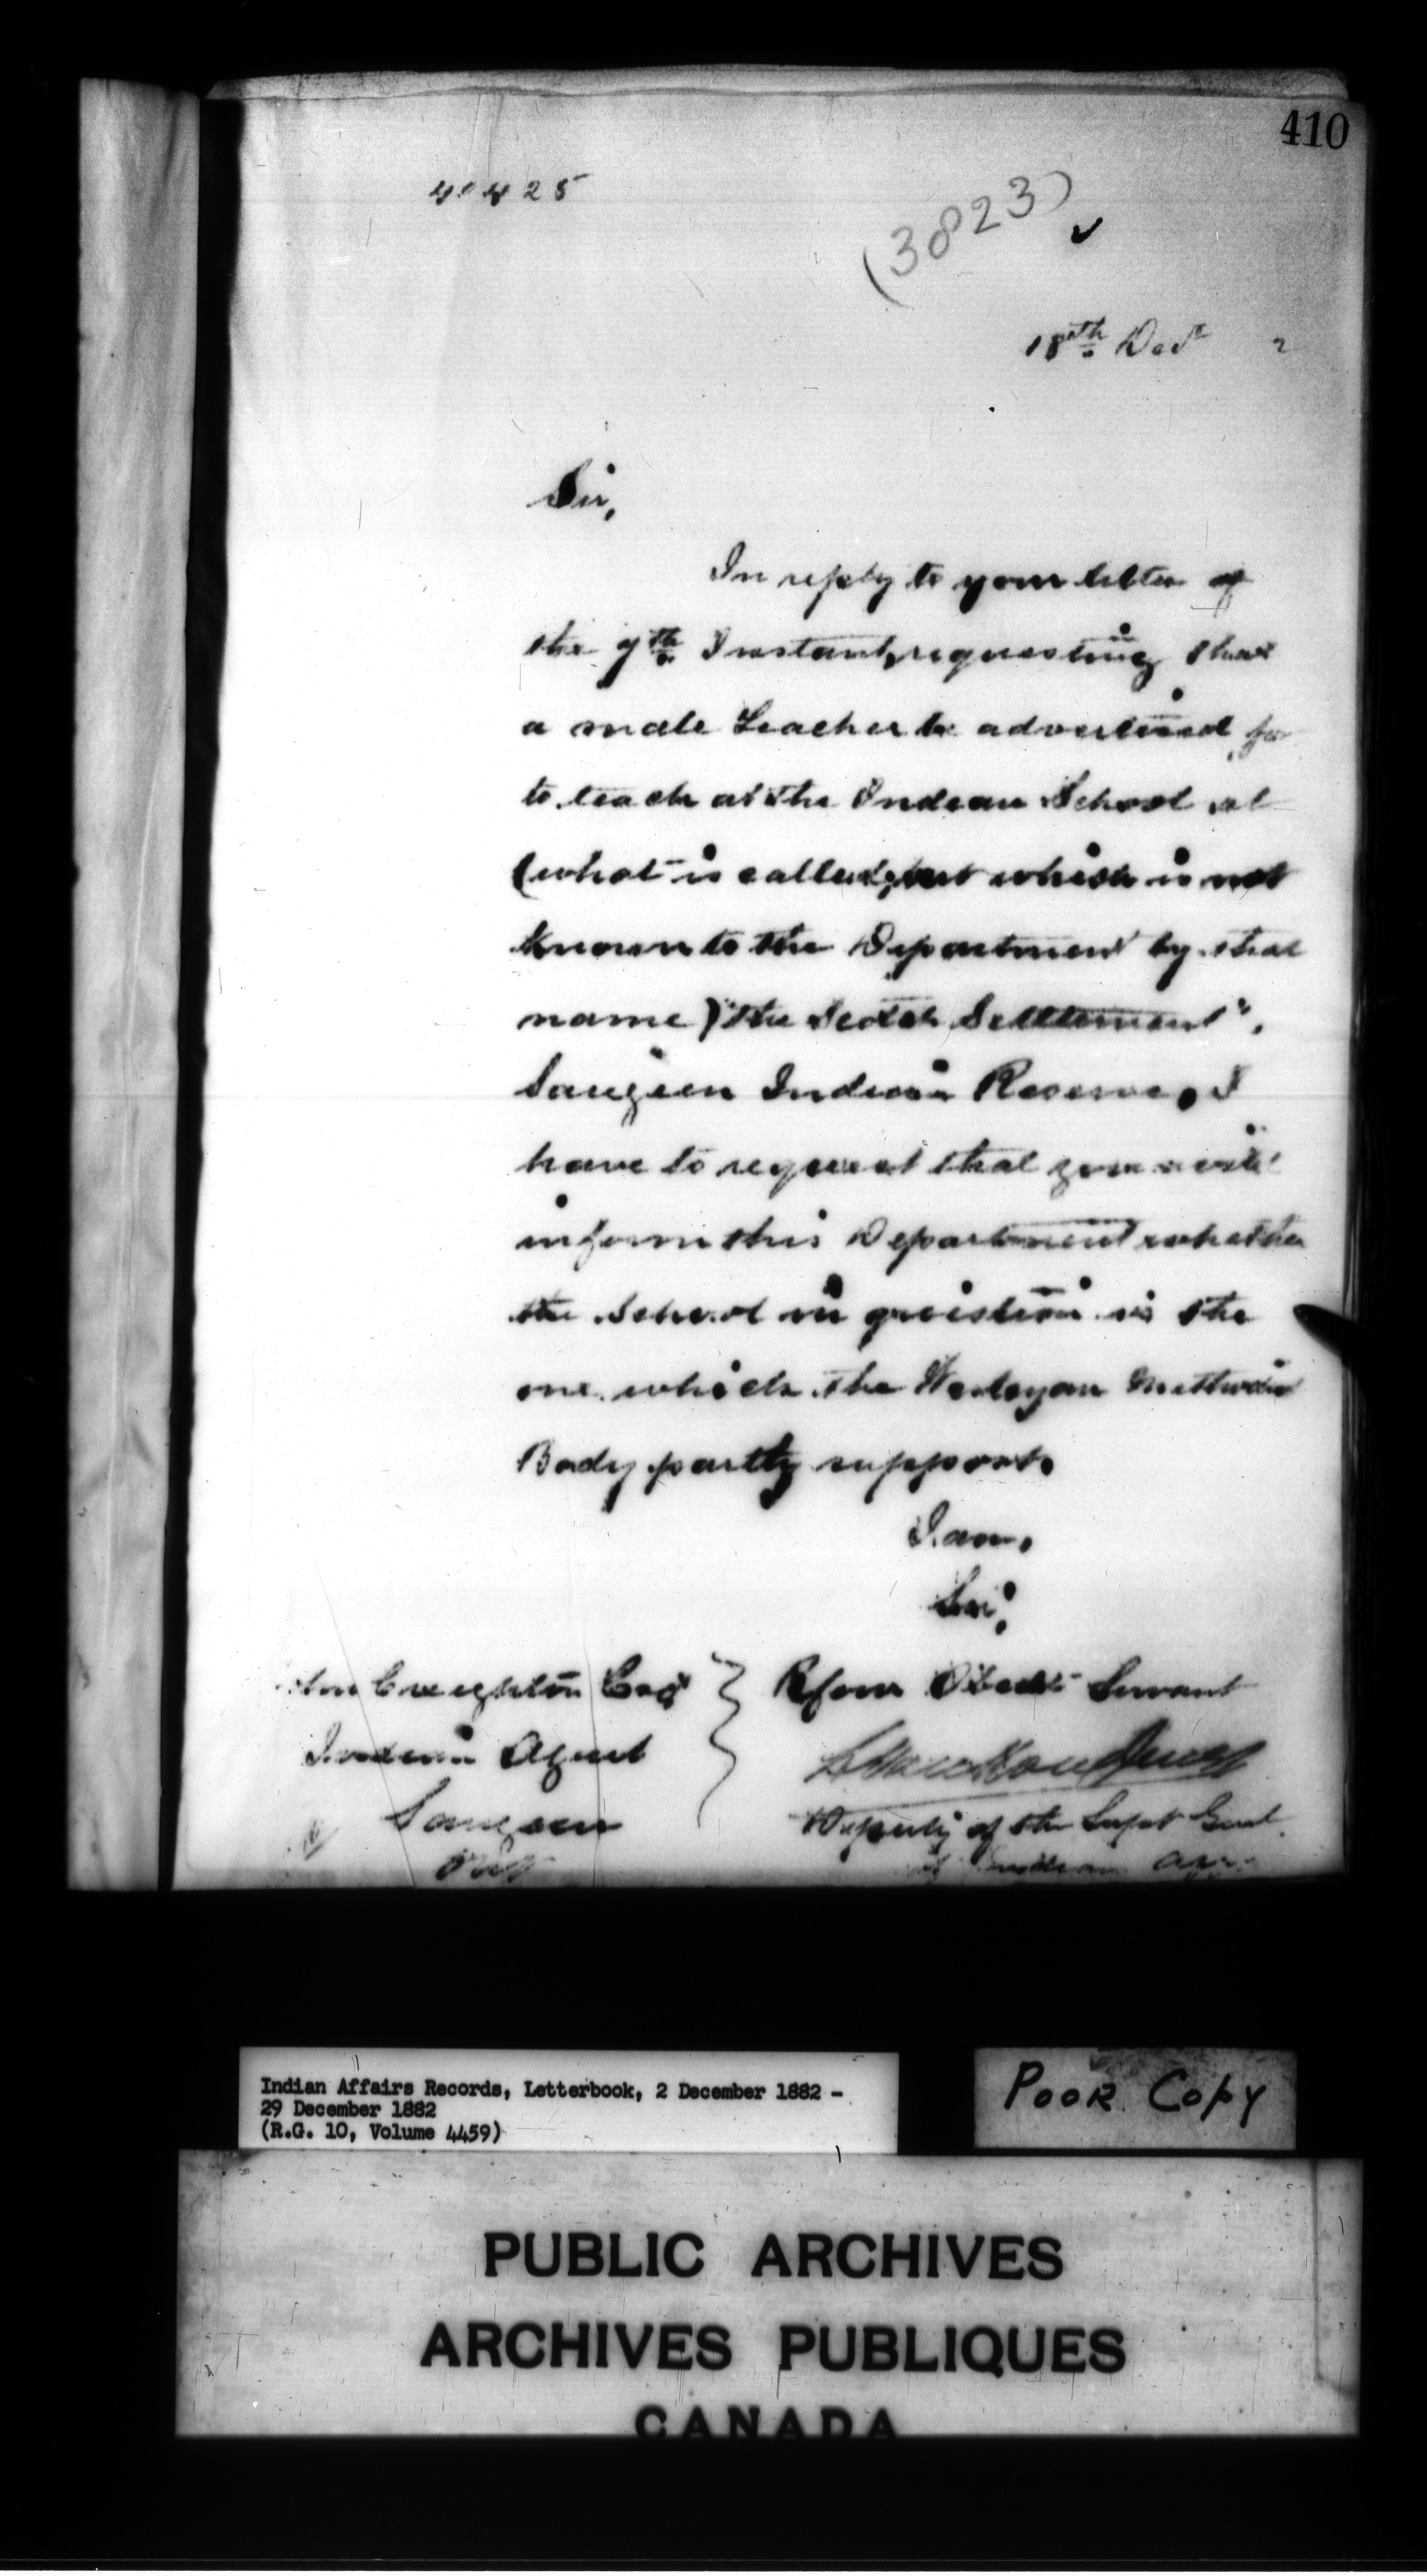 410
40425
(3823)
18th Decr 2
Sir,
In reply to your letter of
the 9th Instant, requesting that
a male teacher be advertised for
to teach at the Indian School at
(what is called, but which is not
known to the Department by that
name) "the Scotch Settlement",
Saugeen Indian Reserve, I
have to request that you will
inform this Department whether
the School in question is the
one which the Wesleyan Methodist
Body partly support.
I am,
Sir,
Creighton Esq
Your Obedt Servant
Indian Agent
Saugeen
Deputy of the Supt Genl
of Indian Aff
Indian Affairs Records, Letterbook, 2 December 1882 -
29 December 1882
(R.G. 10, Volume 4459)
POOR COPY
PUBLIC ARCHIVES
ARCHIVES PUBLIQUES
CANADA